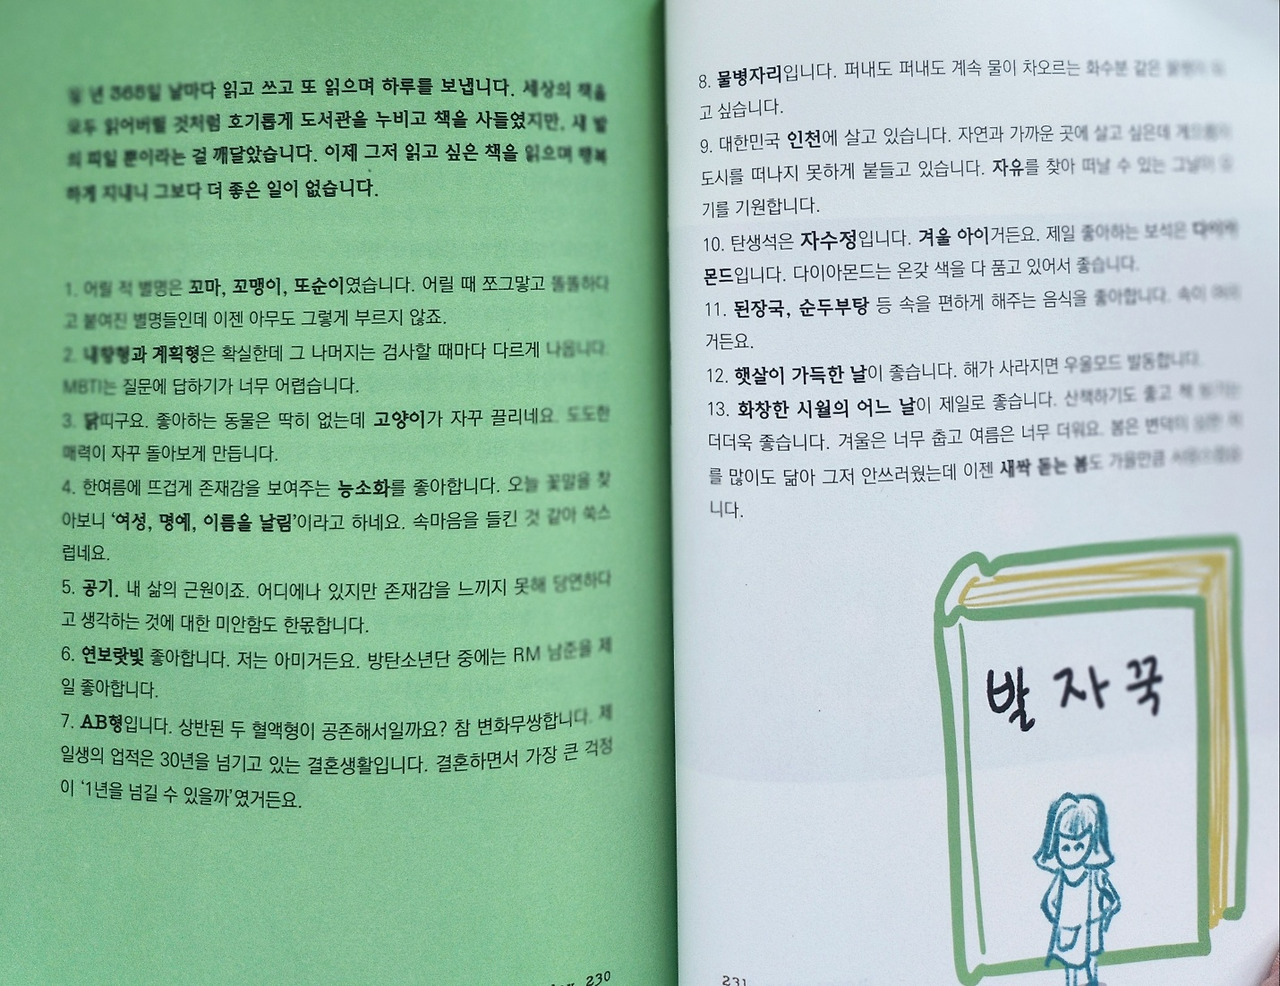 년 365일 날마다 읽고 쓰고 또 읽으며 하루를 보냅니다. 세상의 책을
모두 읽어버릴 것처럼 호기롭게 도서관을 누비고 책을 사들였지만, 새 발
의 피일 뿐이라는 걸 깨달았습니다. 이제 그저 읽고 싶은 책을 읽으며 행복
하게 지내니 그보다 더 좋은 일이 없습니다.
1. 어릴 적 별명은 꼬마, 꼬맹이, 또순이였습니다. 어릴 때 쪼그맣고 똘똘하다
고 붙여진 별명들인데 이젠 아무도 그렇게 부르지 않죠.
2. 내향형과 계획형은 확실한데 그 나머지는 검사할 때마다 다르게 나옵니다.
MBTI는 질문에 답하기가 너무 어렵습니다.
3. 닭띠구요. 좋아하는 동물은 딱히 없는데 고양이가 자꾸 끌리네요. 도도한
매력이 자꾸 돌아보게 만듭니다.
4. 한여름에 뜨겁게 존재감을 보여주는 능소화를 좋아합니다. 오늘 꽃말을 찾
아보니 ‘여성, 명예, 이름을 날림’이라고 하네요. 속마음을 들킨 것 같아 쑥스
럽네요.
5. 공기. 내 삶의 근원이죠. 어디에나 있지만 존재감을 느끼지 못해 당연하다
고 생각하는 것에 대한 미안함도 한몫합니다.
6. 연보랏빛 좋아합니다. 저는 아미거든요. 방탄소년단 중에는 RM 남준을 제
일 좋아합니다.
7. AB형입니다. 상반된 두 혈액형이 공존해서일까요? 참 변화무쌍합니다. 제
일생의 업적은 30년을 넘기고 있는 결혼생활입니다. 결혼하면서 가장 큰 걱정
이 ‘1년을 넘길 수 있을까’였거든요.
230
8. 물병자리입니다. 퍼내도 퍼내도 계속 물이 차오르는 화수분 같은
고 싶습니다.
9. 대한민국 인천에 살고 있습니다. 자연과 가까운 곳에 살고 싶은데
도시를 떠나지 못하게 붙들고 있습니다. 자유를 찾아 떠날 수 있는 그날이
기를 기원합니다.
10. 탄생석은 자수정입니다. 겨울 아이거든요. 제일 좋아하는 보석은 다이아
몬드입니다. 다이아몬드는 온갖 색을 다 품고 있어서 좋습니다.
11. 된장국, 순두부탕 등 속을 편하게 해주는 음식을 좋아합니다. 속이
거든요.
12. 햇살이 가득한 날이 좋습니다. 해가 사라지면 우울모드 발동합니다.
13. 화창한 시월의 어느 날이 제일로 좋습니다. 산책하기도 좋고 책
더더욱 좋습니다. 겨울은 너무 춥고 여름은 너무 더워요. 봄은 변덕이
를 많이도 닮아 그저 안쓰러웠는데 이젠 새싹 돋는 봄도 가을만큼
니다.
발자국
231